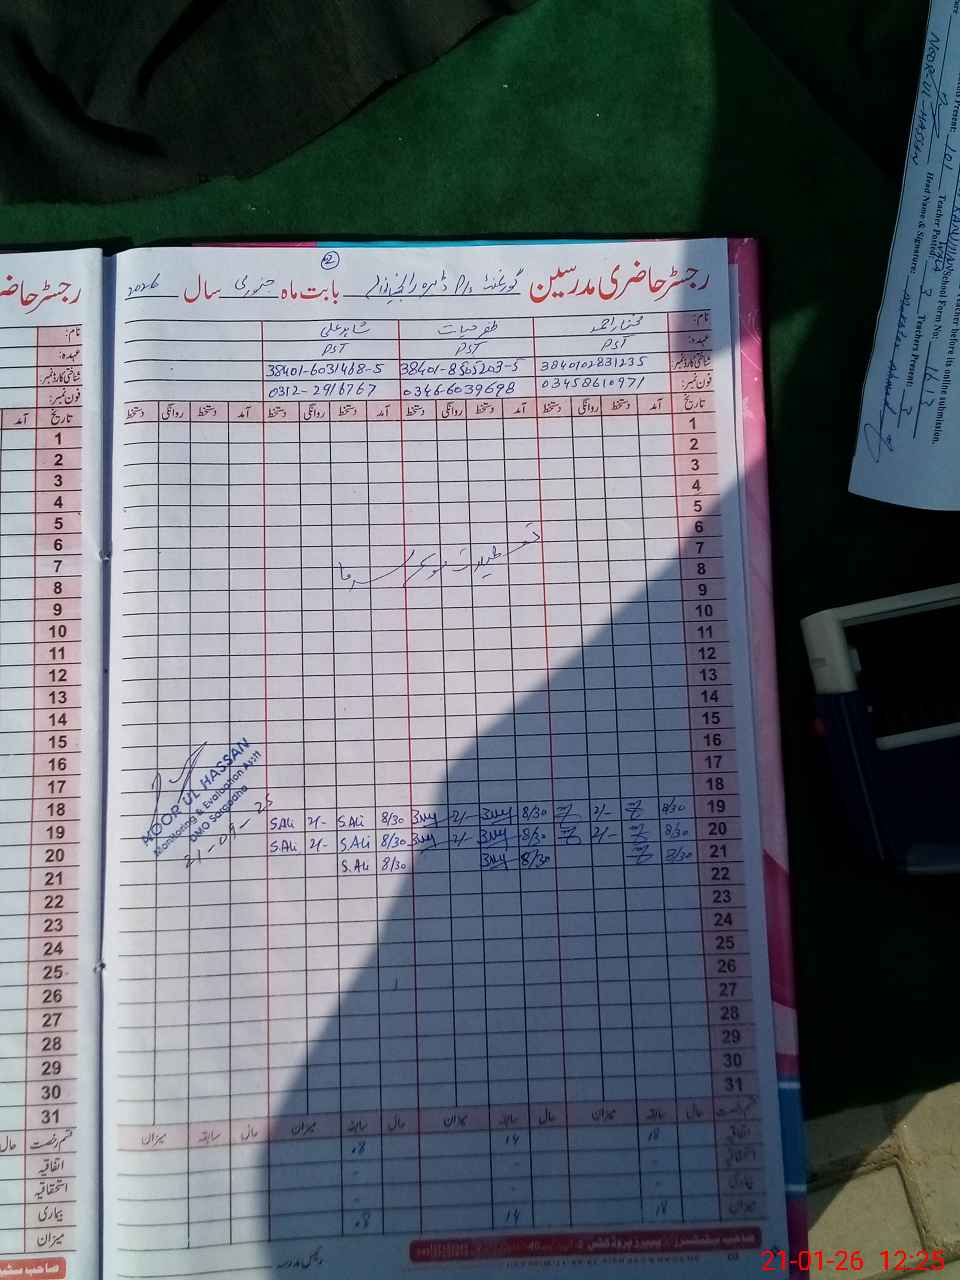 رجسٹر حاضری مدرسین گورنمنٹ P/S ڈیرہ بابت ماہ جنوری سال 2026
2
نام: مختار احمد ظفر حیات شاہد علی
عہدہ: PST PST PST
شناختی کارڈ نمبر: 3840102831235 38401-8565203-5 38401-6031468-5
فون نمبر: 03458610971 0346-6039698 0312-2916767
تاریخ آمد دستخط روانگی دستخط آمد دستخط روانگی دستخط آمد دستخط روانگی دستخط آمد دستخط روانگی دستخط
1
2
3
4
5
6
7
8
9
10
11
12
13
14
15
16
17
18
19 8/30 2/- 8/30 2/- 8/30 S.Ali 2/- S.Ali
20 8/30 2/- 8/30 2/- 8/30 S.Ali 2/- S.Ali
21 8/30 8/30 8/30 S.Ali
22
23
24
25
26
27
28
29
30
31
تعطیلات موسم سرما
NOOR UL HASSAN
Monitoring & Evaluation Asstt
DMO Sargodha
قسم رخصت حال سابقہ میزان حال سابقہ میزان حال سابقہ میزان حال سابقہ میزان
اتفاقیہ 18 14 08
استحقاقیہ - - -
بیماری - - -
میزان 18 14 08
رئیس مدرسہ
رجسٹر حاضری
نام:
عہدہ:
شناختی کارڈ نمبر:
فون نمبر:
تاریخ آمد
1
2
3
4
5
6
7
8
9
10
11
12
13
14
15
16
17
18
19
20
21
22
23
24
25
26
27
28
29
30
31
قسم رخصت حال
اتفاقیہ
استحقاقیہ
بیماری
میزان
NOOR-UL-HASSAN
Present: 101
Teacher Posted: 3
Teachers Present: 3
Head Name & Signature: Mukhtar Ahmad
School Form No:
Teacher before its online submission.
21-01-26 12:25